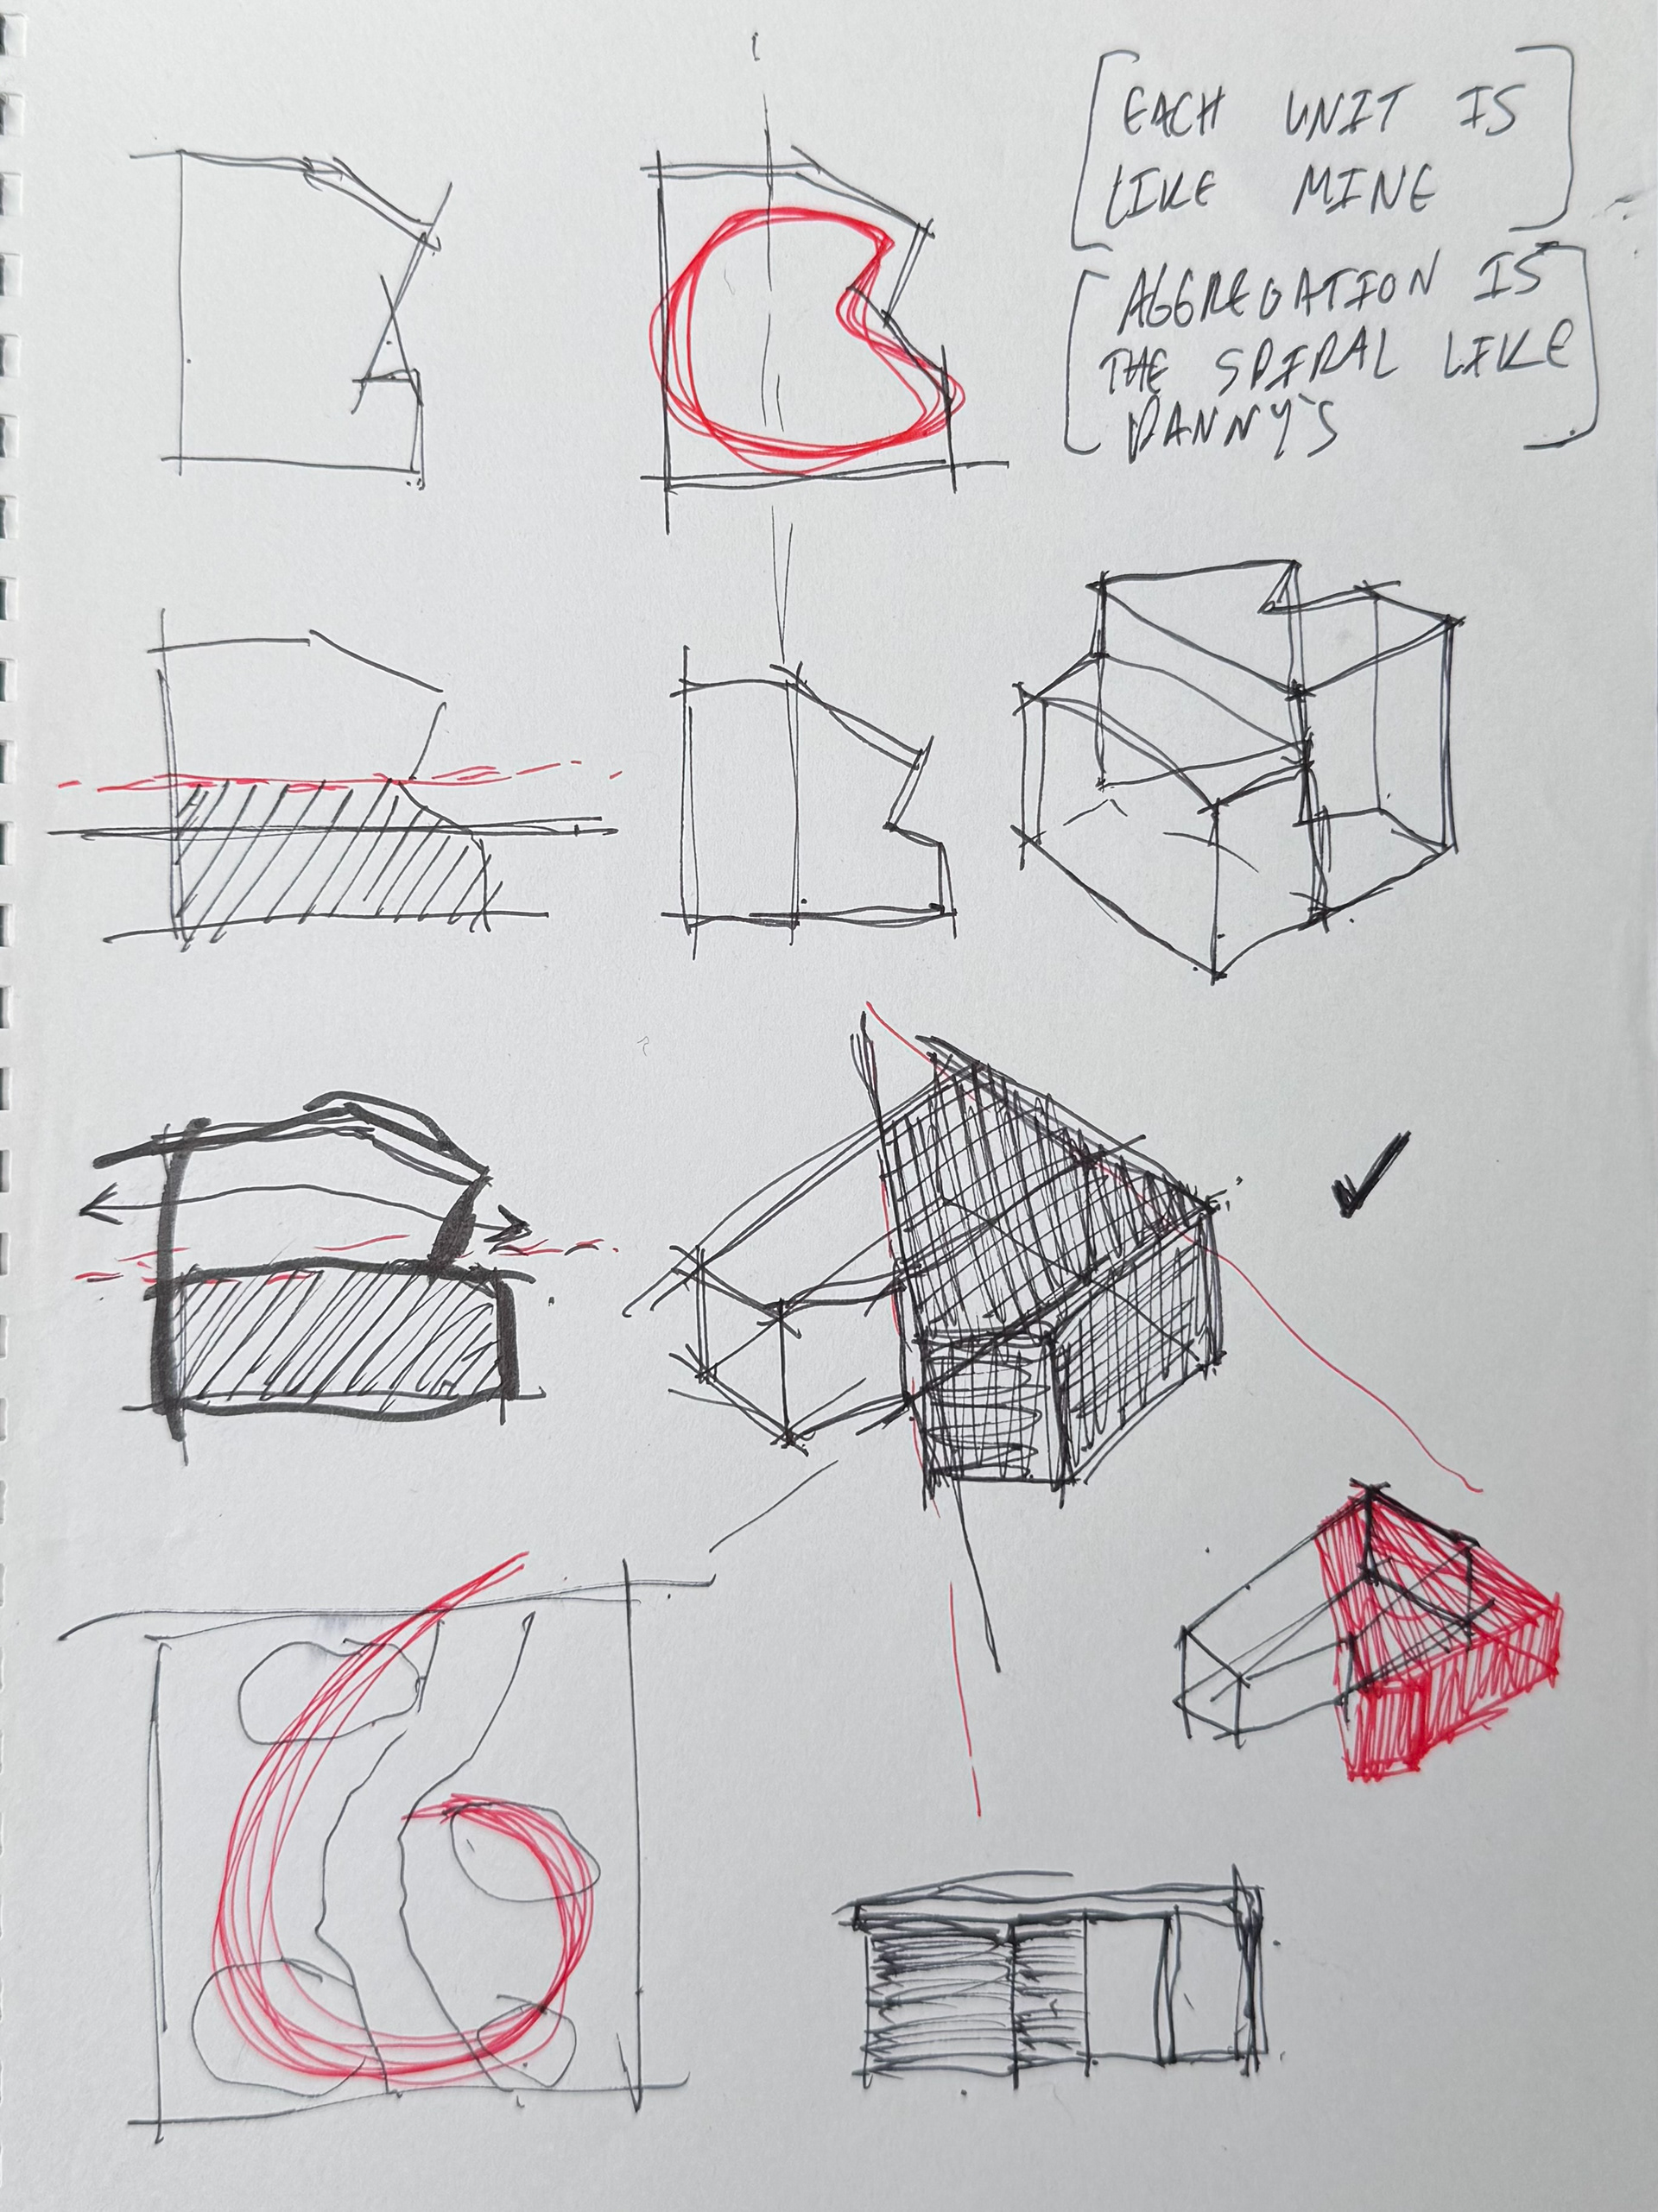 EACH UNIT IS
LIKE MINE
AGGREGATION IS
THE SPIRAL LIKE
DANNY'S